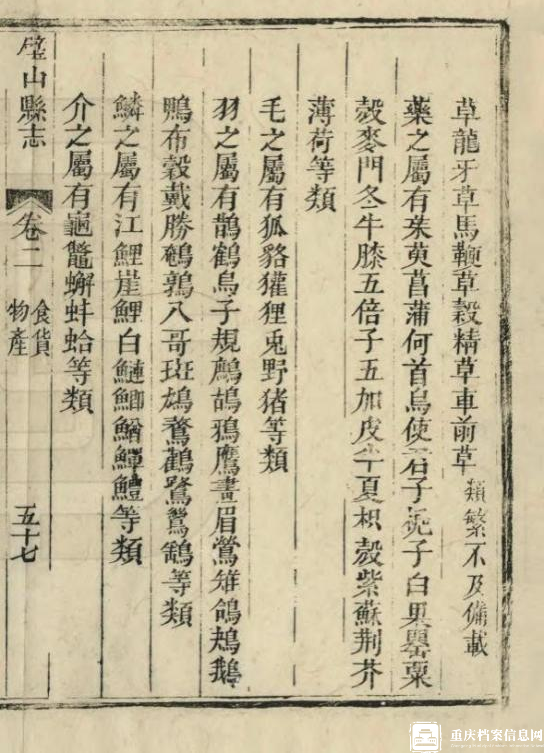 草龍牙草馬鞭草穀精草車前草類繁不及備載
藥之屬有茱萸菖蒲何首烏使君子梔子白果罌粟
殼麥門冬牛膝五倍子五加皮半夏枳殼紫蘇荆芥
薄荷等類
毛之屬有狐貉獾狸兎野猪等類
羽之屬有鵲鶴烏子規鷓鴣鴉鷹畫眉鶯雉鴿鴆鵝
鴨布穀戴勝鵪鶉八哥斑鳩鶖鸛鷺鴛鷀等類
鱗之屬有江鯉崖鯉白鰱鯽鰌鱓鱧等類
介之屬有龜鼈蠏蚌蛤等類
璧山縣志
卷二
食貨
物產
五十七
重庆档案信息网